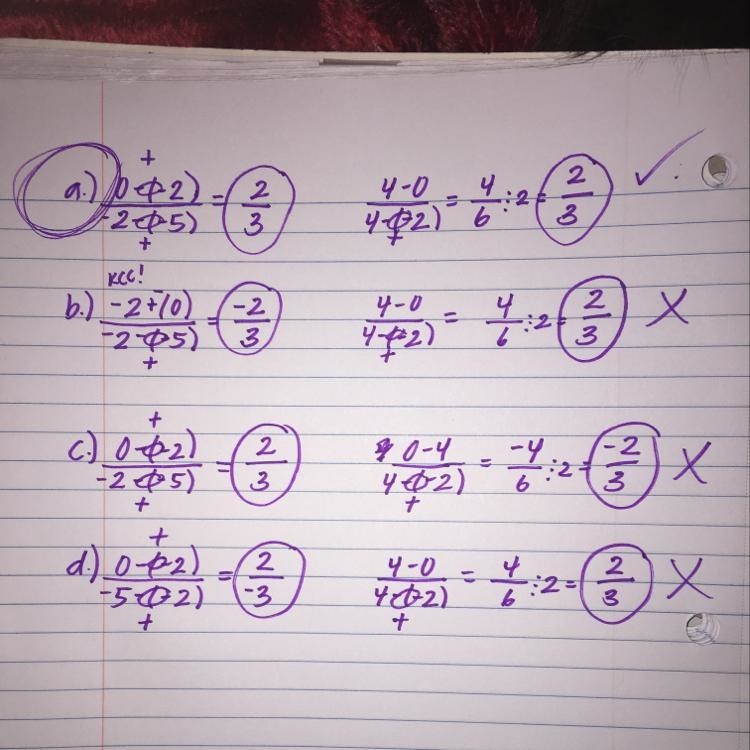 +
a.) 0-(-2) / -2-(-5) = 2/3    4-0 / 4-(-2) = 4/6 ÷2 = 2/3 ✓.
+ +
KCC!
b.) -2+-(0) / -2-(-5) = -2/3    4-0 / 4-(-2) = 4/6 ÷2 = 2/3 X
+ +
+
c.) 0-(-2) / -2-(-5) = 2/3    0-4 / 4-(-2) = -4/6 ÷2 = -2/3 X
+ +
+
d.) 0-(-2) / -5-(-2) = 2/-3    4-0 / 4-(-2) = 4/6 ÷2 = 2/3 X
+ +